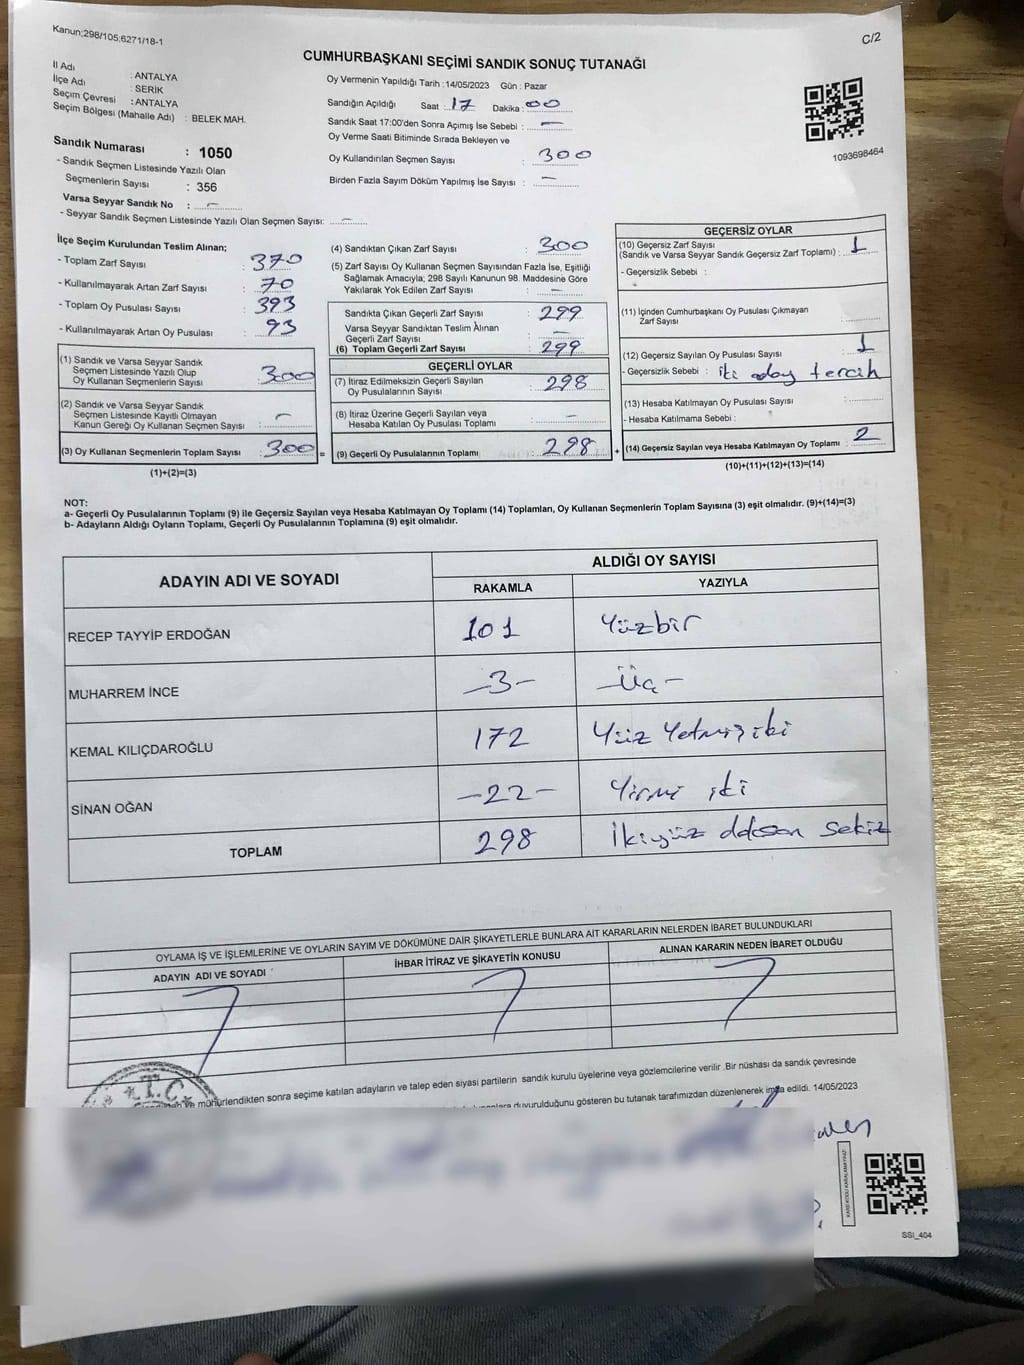 Kanun;298/105;6271/18-1
C/2
CUMHURBAŞKANI SEÇİMİ SANDIK SONUÇ TUTANAĞI
İl Adı : ANTALYA
İlçe Adı : SERİK
Seçim Çevresi : ANTALYA
Seçim Bölgesi (Mahalle Adı) : BELEK MAH.
Sandık Numarası : 1050
- Sandık Seçmen Listesinde Yazılı Olan
Seçmenlerin Sayısı : 356
Varsa Seyyar Sandık No : -
- Seyyar Sandık Seçmen Listesinde Yazılı Olan Seçmen Sayısı: -
Oy Vermenin Yapıldığı Tarih :14/05/2023 Gün : Pazar
Sandığın Açıldığı Saat : 17 Dakika : 00
Sandık Saat 17:00'den Sonra Açımış İse Sebebi : -
Oy Verme Saati Bitiminde Sırada Bekleyen ve
Oy Kullandırılan Seçmen Sayısı : 300
Birden Fazla Sayım Döküm Yapılmış İse Sayısı : -
1093698464
İlçe Seçim Kurulundan Teslim Alınan;
- Toplam Zarf Sayısı : 370
- Kullanılmayarak Artan Zarf Sayısı : 70
- Toplam Oy Pusulası Sayısı : 393
- Kullanılmayarak Artan Oy Pusulası : 93
(1) Sandık ve Varsa Seyyar Sandık
Seçmen Listesinde Yazılı Olup
Oy Kullanan Seçmenlerin Sayısı : 300
(2) Sandık ve Varsa Seyyar Sandık
Seçmen Listesinde Kayıtlı Olmayan
Kanun Gereği Oy Kullanan Seçmen Sayısı : -
(3) Oy Kullanan Seçmenlerin Toplam Sayısı : 300 =
(1)+(2)=(3)
(4) Sandıktan Çıkan Zarf Sayısı : 300
(5) Zarf Sayısı Oy Kullanan Seçmen Sayısından Fazla İse, Eşitliği
Sağlamak Amacıyla; 298 Sayılı Kanunun 98. Maddesine Göre
Yakılarak Yok Edilen Zarf Sayısı : -
Sandıkta Çıkan Geçerli Zarf Sayısı : 299
Varsa Seyyar Sandıktan Teslim Alınan
Geçerli Zarf Sayısı : -
(6) Toplam Geçerli Zarf Sayısı : 299
GEÇERLİ OYLAR
(7) İtiraz Edilmeksizin Geçerli Sayılan
Oy Pusulalarının Sayısı : 298
(8) İtiraz Üzerine Geçerli Sayılan veya
Hesaba Katılan Oy Pusulası Toplamı : -
(9) Geçerli Oy Pusulalarının Toplamı : 298 +
GEÇERSİZ OYLAR
(10) Geçersiz Zarf Sayısı
(Sandık ve Varsa Seyyar Sandık Geçersiz Zarf Toplamı) : 1
- Geçersizlik Sebebi :
(11) İçinden Cumhurbaşkanı Oy Pusulası Çıkmayan
Zarf Sayısı :
(12) Geçersiz Sayılan Oy Pusulası Sayısı : 1
- Geçersizlik Sebebi : iki aday tercih
(13) Hesaba Katılmayan Oy Pusulası Sayısı :
- Hesaba Katılmama Sebebi :
(14) Geçersiz Sayılan veya Hesaba Katılmayan Oy Toplamı : 2
(10)+(11)+(12)+(13)=(14)
NOT:
a- Geçerli Oy Pusulalarının Toplamı (9) ile Geçersiz Sayılan veya Hesaba Katılmayan Oy Toplamı (14) Toplamları, Oy Kullanan Seçmenlerin Toplam Sayısına (3) eşit olmalıdır. (9)+(14)=(3)
b- Adayların Aldığı Oyların Toplamı, Geçerli Oy Pusulalarının Toplamına (9) eşit olmalıdır.
ADAYIN ADI VE SOYADI
ALDIĞI OY SAYISI
RAKAMLA YAZIYLA
RECEP TAYYİP ERDOĞAN 101 Yüzbir
MUHARREM İNCE -3- -Üç-
KEMAL KILIÇDAROĞLU 172 Yüz Yetmiş iki
SİNAN OĞAN -22- Yirmi iki
TOPLAM 298 İkiyüz doksan sekiz
OYLAMA İŞ VE İŞLEMLERİNE VE OYLARIN SAYIM VE DÖKÜMÜNE DAİR ŞİKAYETLERLE BUNLARA AİT KARARLARIN NELERDEN İBARET BULUNDUKLARI
ADAYIN ADI VE SOYADI
İHBAR İTİRAZ VE ŞİKAYETİN KONUSU
ALINAN KARARIN NEDEN İBARET OLDUĞU
T.C.
mühürlendikten sonra seçime katılan adayların ve talep eden siyasi partilerin sandık kurulu üyelerine veya gözlemcilerine verilir .Bir nüshası da sandık çevresinde
duyurulduğunu gösteren bu tutanak tarafımızdan düzenlenerek imza edildi. 14/05/2023
SSI_404